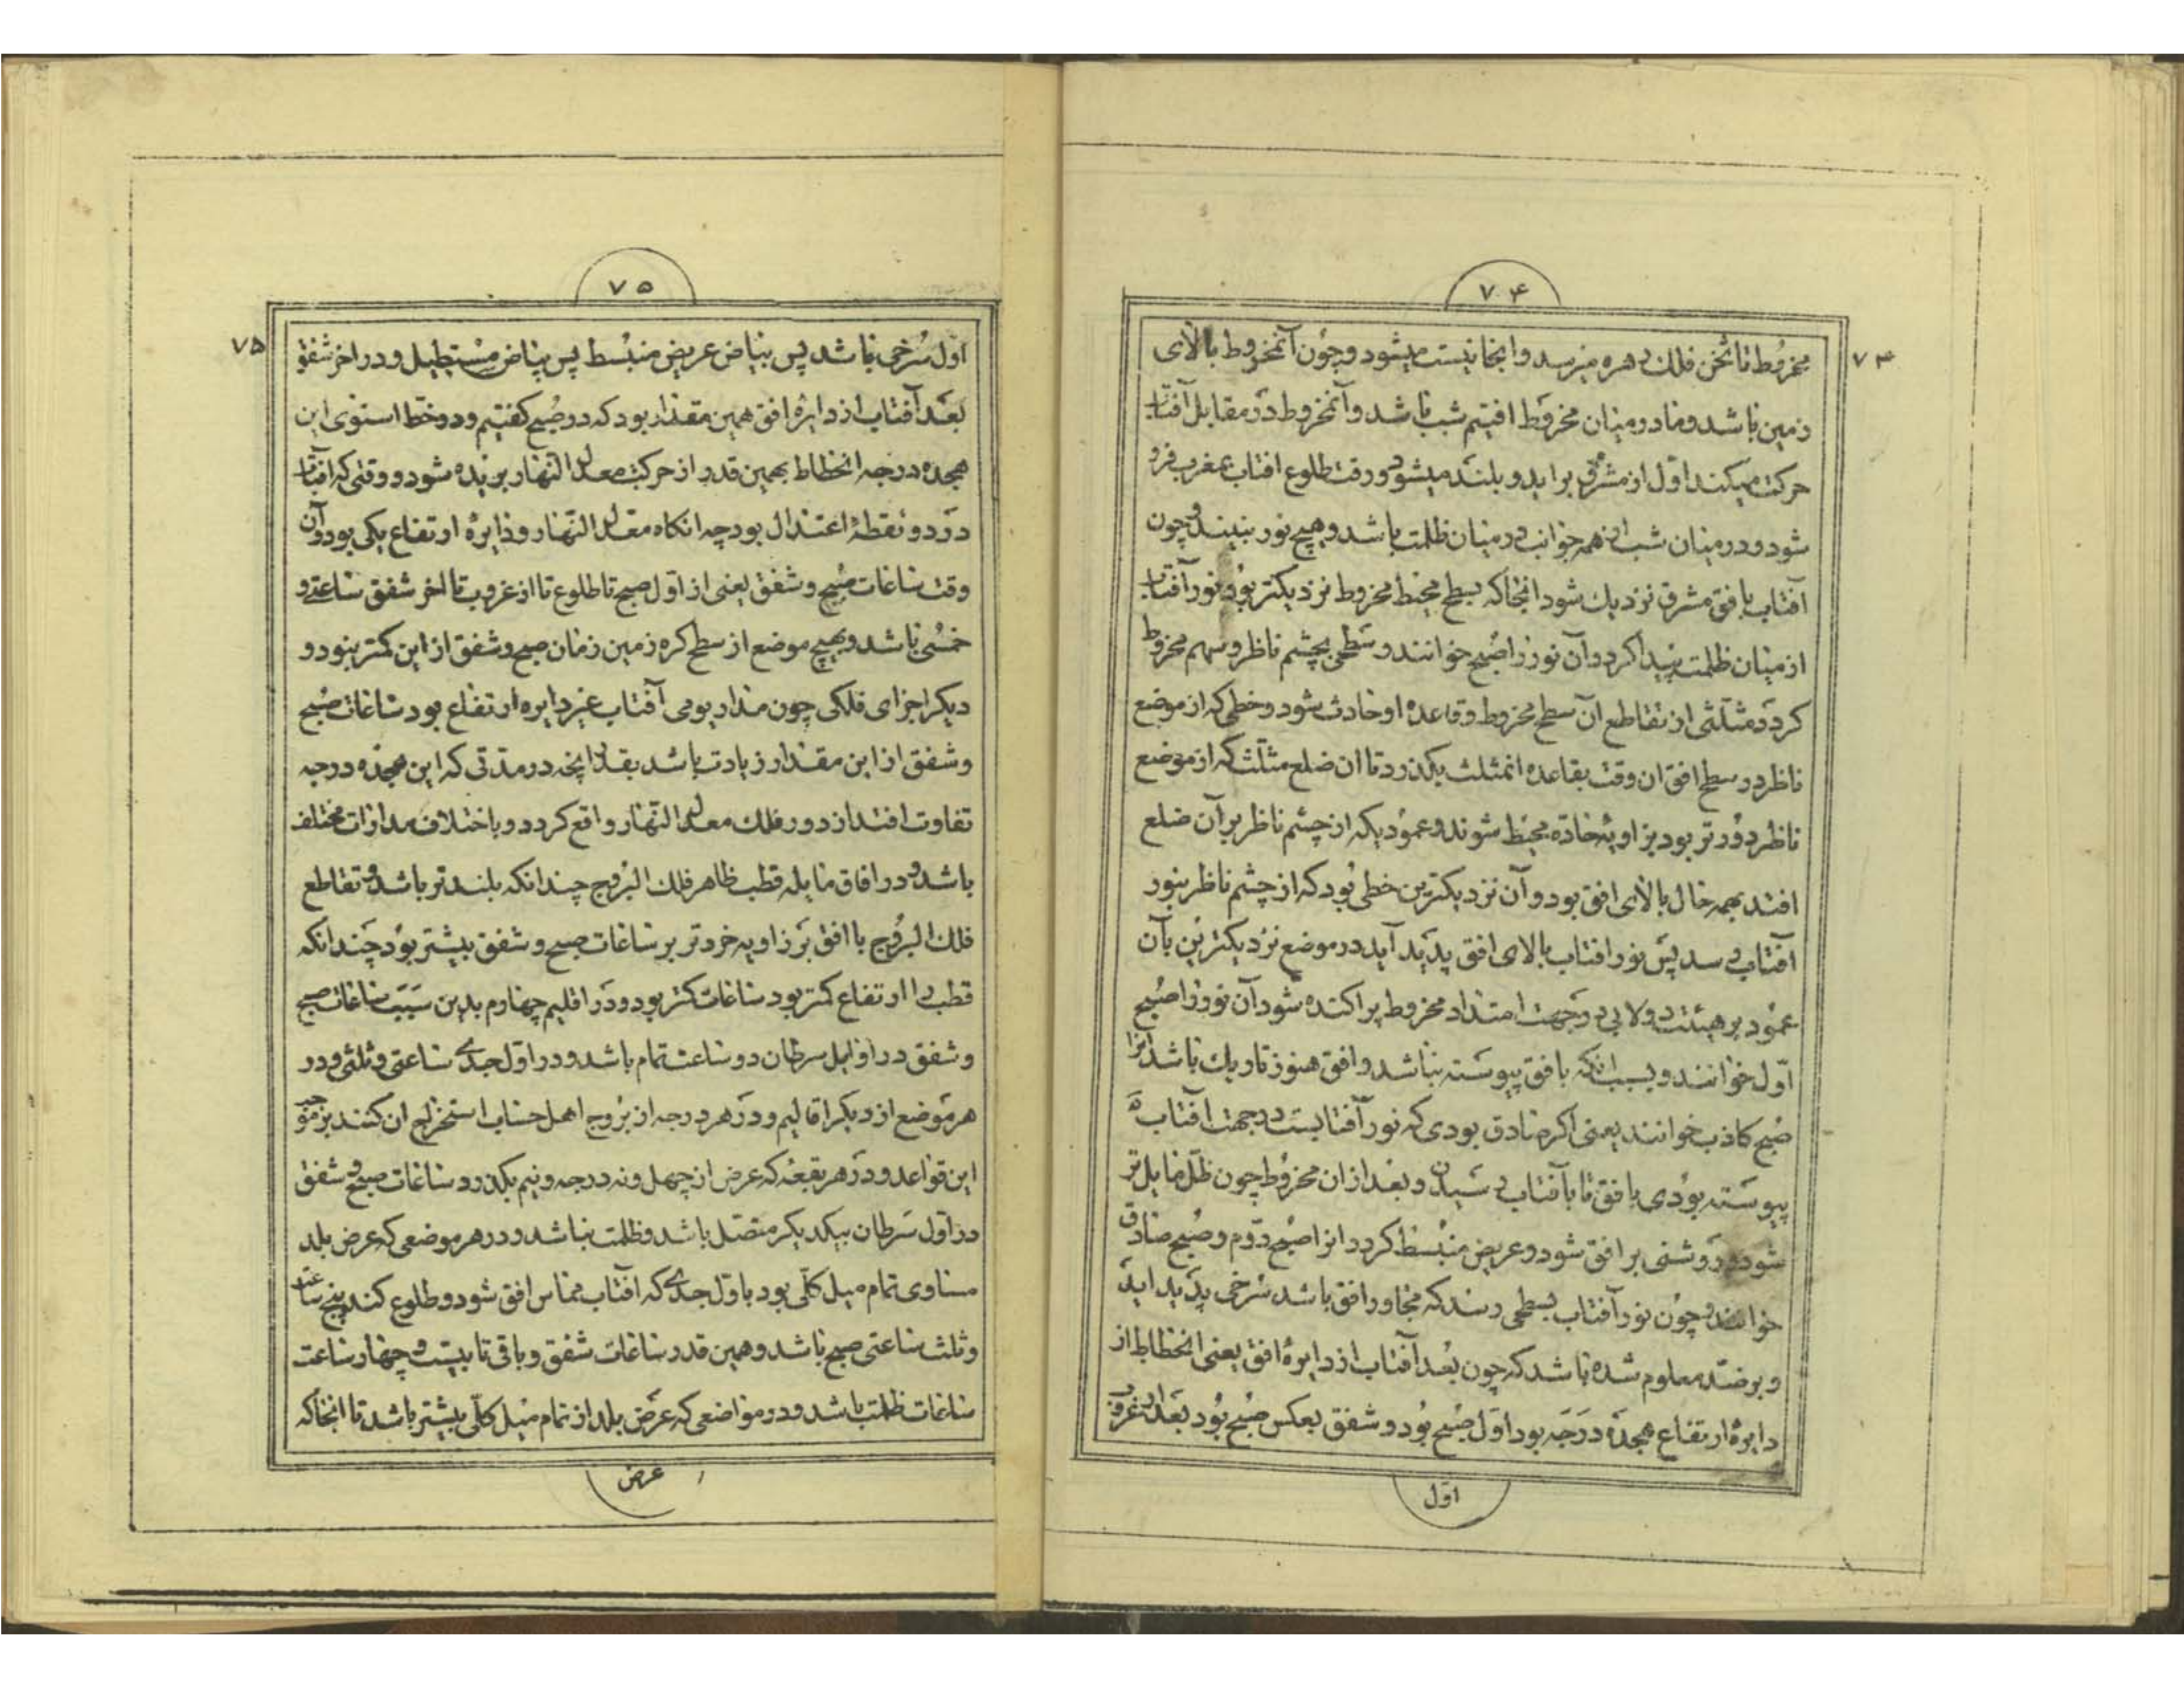 ۷۴
۷۴
مخروط تا ثخن فلک زهره میرسد و اینجا نیست میشود و چون آنمخروط بالای
زمین باشد و ما در میان مخروط افتیم شب باشد و آنمخروط در مقابل آفتاب
حرکت میکند اول از مشرق بر اید و بلند میشود و وقت طلوع افتاب بمغرب فرو
شود و در میان شب از همه جوانب در میان ظلمت باشد و هیچ نور نبیند و چون
آفتاب بافق مشرق نزدیک شود انجا که بسطح محیط مخروط نزدیکتر بود نور آفتاب
از میان ظلمت پیدا کردد و آن نور را صبح خوانند و سطحی بچشم ناظر و سهم مخروط
کردد مثلثی از تقاطع آن سطح مخروط و قاعده او حادث شود و خطی که از موضع
ناظر در سطح افق ان وقت بقاعده انمثلث بکذرد تا ان ضلع مثلث که از موضع
ناظر دورتر بود بزاویهٔ حاده محیط شوند و عمودیکه از چشم ناظر بر آن ضلع
افتد بهمه حال بالای افق بود و آن نزدیکترین خطی بود که از چشم ناظر بنور
آفتاب رسد پس نور افتاب بالای افق پدید آید در موضع نزدیکترین بآن
عمود بر هیئت دولابی در جهت امتداد مخروط پراکنده شود آن نور را صبح
اول خوانند و بسبب انکه بافق پیوسته نباشد و افق هنوز تاریک باشد انرا
صبح کاذب خوانند یعنی اکر صادق بودی که نور آفتابست در جهت افتاب
پیوسته بودی بافق تا بآفتاب رسیدن و بعد از ان مخروط چون ظل مایل تر
شود و روشنی بر افق شود و عریض منبسط کردد انرا صبح دوم و صبح صادق
خوانند و چون نور آفتاب بسطحی رسد که مجاور افق باشد سرخی پدید اید
و برصد معلوم شده باشد که چون بعد آفتاب از دایرهٔ افق یعنی انحطاط از
دایرهٔ ارتفاع هجده درجه بود اول صبح بود و شفق بعکس صبح بود بعد از غروب
اول
۷۵
۷۵
اول سرخی باشد پس بیاض عریض منبسط پس بیاض مستطیل و در اخر شفق
بعد آفتاب از دایرهٔ افق همین مقدار بود که در صبح کفتیم و در خط استوی این
هجده درجه انحطاط بهمین قدر از حرکت معدل النهار بریده شود و وقتی که افتاب
در دو نقطهٔ اعتدال بود چه انکاه معدل النهار و دایرهٔ ارتفاع یکی بود و آن
وقت ساعات صبح و شفق یعنی از اول صبح تا طلوع تا از غروب تا اخر شفق ساعتی و
خمسی باشد و بهیچ موضع از سطح کره زمین زمان صبح و شفق از این کمتر نبود و
دیکر اجزای فلکی چون مدار یومی آفتاب غیر دایره ارتفاع بود ساعات صبح
و شفق از این مقدار زیادت باشد بقدر آنچه در مدتی که این هجده درجه
تفاوت افتد از دور فلک معدل النهار واقع کردد و باختلاف مدارات مختلف
باشد و در افاق مایله قطب ظاهر فلک البروج چندانکه بلندتر باشد و تقاطع
فلک البروج با افق بر زاویه خردتر بر ساعات صبح و شفق بیشتر بود چندانکه
قطب را ارتفاع کمتر بود ساعات کمتر بود و در اقلیم چهارم بدین سبب ساعات صبح
و شفق در اوایل سرطان دو ساعت تمام باشد و در اول جدی ساعتی و ثلثی و در
هر موضع از دیکر اقالیم و در هر درجه از بروج اهل حساب استخراج ان کنند بر موجب
این قواعد و در هر بقعه که عرض از چهل و نه درجه و نیم بکذرد ساعات صبح و شفق
در اول سرطان بیکدیکر متصل باشد و ظلمت نباشد و در هر موضعی که عرض بلد
مساوی تمام میل کلی بود باول جدی که افتاب مماس افق شود و طلوع کند پنج ساعت
و ثلث ساعتی صبح باشد و همین قدر ساعات شفق و باقی تا بیست و چهار ساعت
ساعات ظلمت باشد و در مواضعی که عرض بلد از تمام میل کلی بیشتر باشد تا انجا که
عرض